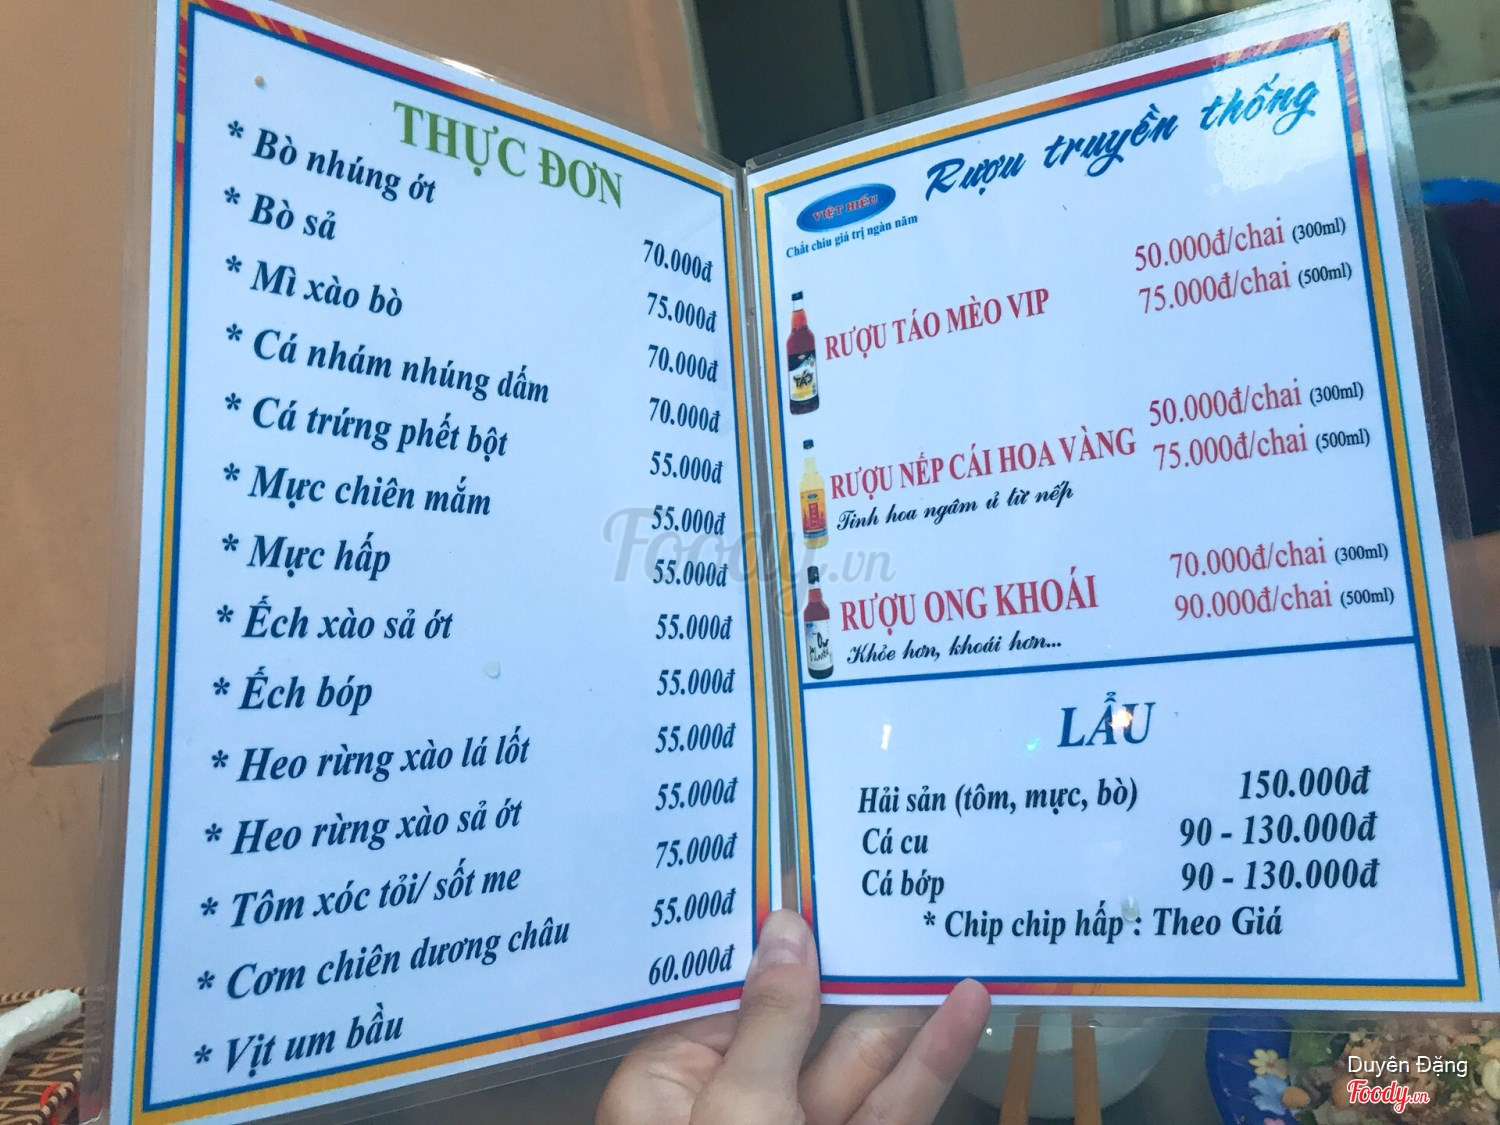 THỰC ĐƠN
* Bò nhúng ớt 70.000đ
* Bò sả 75.000đ
* Mì xào bò 70.000đ
* Cá nhám nhúng dấm 70.000đ
* Cá trứng phết bột 55.000đ
* Mực chiên mắm 55.000đ
* Mực hấp 55.000đ
* Ếch xào sả ớt 55.000đ
* Ếch bóp 55.000đ
* Heo rừng xào lá lốt 55.000đ
* Heo rừng xào sả ớt 55.000đ
* Tôm xóc tỏi/ sốt me 75.000đ
* Cơm chiên dương châu 55.000đ
* Vịt um bầu 60.000đ
Rượu truyền thống
VIỆT HIẾU
Chắt chiu giá trị ngàn năm
50.000đ/chai (300ml)
RƯỢU TÁO MÈO VIP 75.000đ/chai (500ml)
TÁO
50.000đ/chai (300ml)
RƯỢU NẾP CÁI HOA VÀNG 75.000đ/chai (500ml)
Tinh hoa ngâm ủ từ nếp
70.000đ/chai (300ml)
RƯỢU ONG KHOÁI 90.000đ/chai (500ml)
Khỏe hơn, khoái hơn...
LẨU
Hải sản (tôm, mực, bò) 150.000đ
Cá cu 90 - 130.000đ
Cá bớp 90 - 130.000đ
* Chip chip hấp : Theo Giá
Foody.vn
Duyên Đặng
Foody.vn